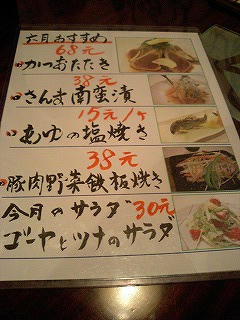 六月おすすめ
68元
かつおたたき
38元
さんま南蛮漬
15元/ヶ
あゆの塩焼き
38元
豚肉野菜鉄板焼き
今月のサラダ 30元
ゴーヤとツナのサラダ